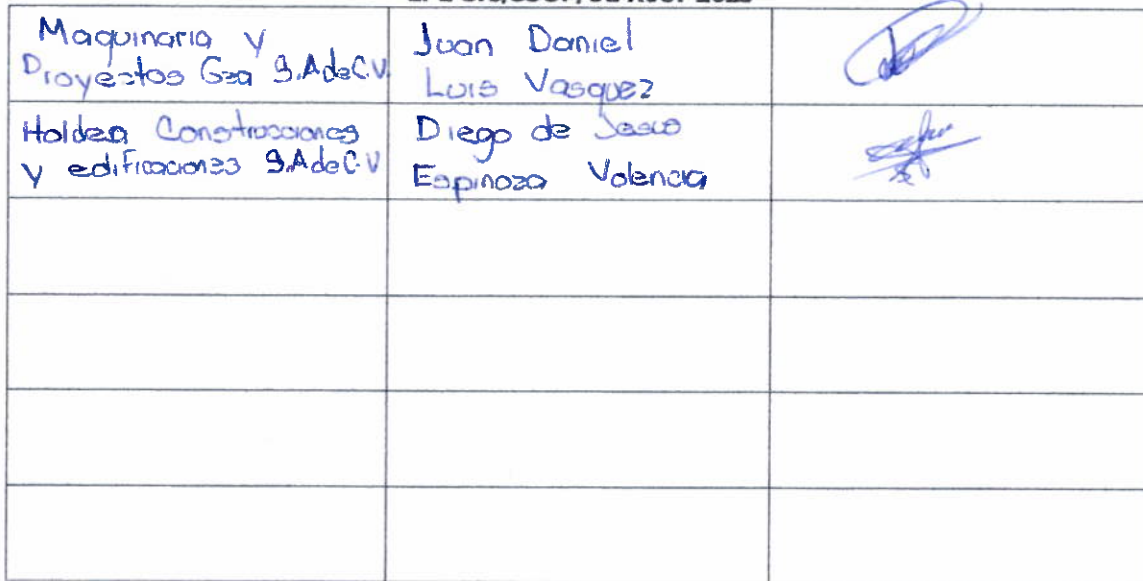 Maquinaria y
Proyectos Gza S.A de C.V.
Juan Daniel
Luis Vasquez
Holden Construcciones
y edificaciones S.A de C.V
Diego de Jesus
Espinoza Valencia